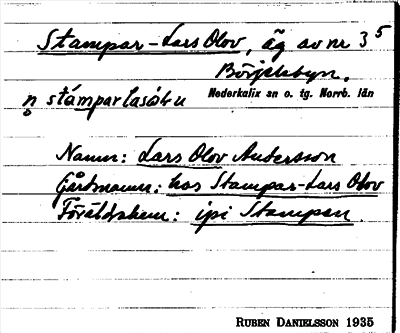 Stampar-Lars Olov, äg av nr 3⁵
Börjelsbyn.
Nederkalix sn o. tg. Norrb. län
n stámparlasóvu
Namn: Lars Olov Andersson
Gårdsnamn: hos Stampar-Lars Olov
Föräldrahem: ipi Stampen.
RUBEN DANIELSSON 1935